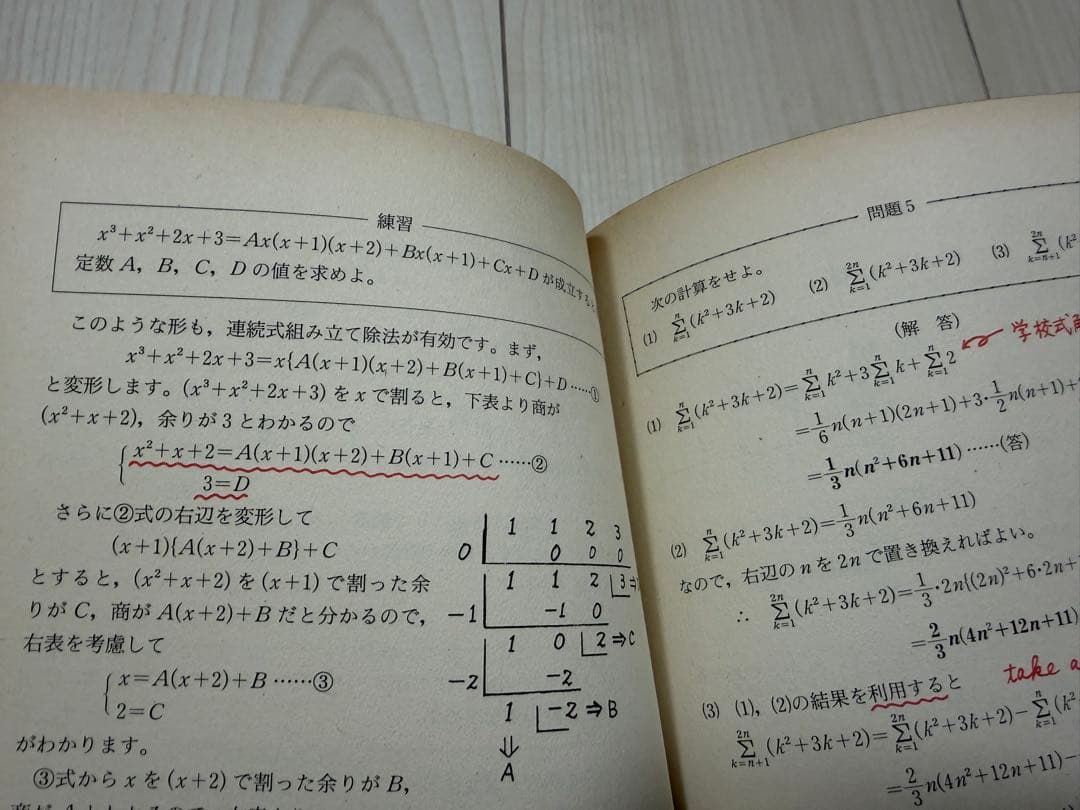 練習
x³+x²+2x+3=Ax(x+1)(x+2)+Bx(x+1)+Cx+D が成立する
定数 A, B, C, D の値を求めよ。
このような形も，連続式組み立て除法が有効です。まず，
x³+x²+2x+3=x{A(x+1)(x+2)+B(x+1)+C}+D……①
と変形します。(x³+x²+2x+3) を x で割ると，下表より商が
(x²+x+2)，余りが 3 とわかるので
x²+x+2=A(x+1)(x+2)+B(x+1)+C……②
3=D
さらに②式の右辺を変形して
(x+1){A(x+2)+B}+C
とすると，(x²+x+2) を (x+1) で割った余
りが C，商が A(x+2)+B だと分かるので，
右表を考慮して
x=A(x+2)+B……③
2=C
がわかります。
③式から x を (x+2) で割った余りが B，
0 1 1 2 3
0 0 0
1 1 2 3⇒
-1 -1 0
1 0 2⇒C
-2 -2
1 -2⇒B
⇓
A
問題5
次の計算をせよ。
(1) \sum_{k=1}^{n}(k²+3k+2) (2) \sum_{k=1}^{2n}(k²+3k+2) (3) \sum_{k=n+1}^{2n}(k²
(解 答)
学校式
(1) \sum_{k=1}^{n}(k²+3k+2)=\sum_{k=1}^{n}k²+3\sum_{k=1}^{n}k+\sum_{k=1}^{n}2
=\frac{1}{6}n(n+1)(2n+1)+3·\frac{1}{2}n(n+1)+
=\frac{1}{3}n(n²+6n+11)……(答)
(2) \sum_{k=1}^{n}(k²+3k+2)=\frac{1}{3}n(n²+6n+11)
なので，右辺の n を 2n で置き換えればよい。
∴ \sum_{k=1}^{2n}(k²+3k+2)=\frac{1}{3}·2n{(2n)²+6·2n+
=\frac{2}{3}n(4n²+12n+11)
take a
(3) (1), (2)の結果を利用すると
\sum_{k=n+1}^{2n}(k²+3k+2)=\sum_{k=1}^{2n}(k²+3k+2)-\sum_{k=1}^{n}(k²
=\frac{2}{3}n(4n²+12n+11)-